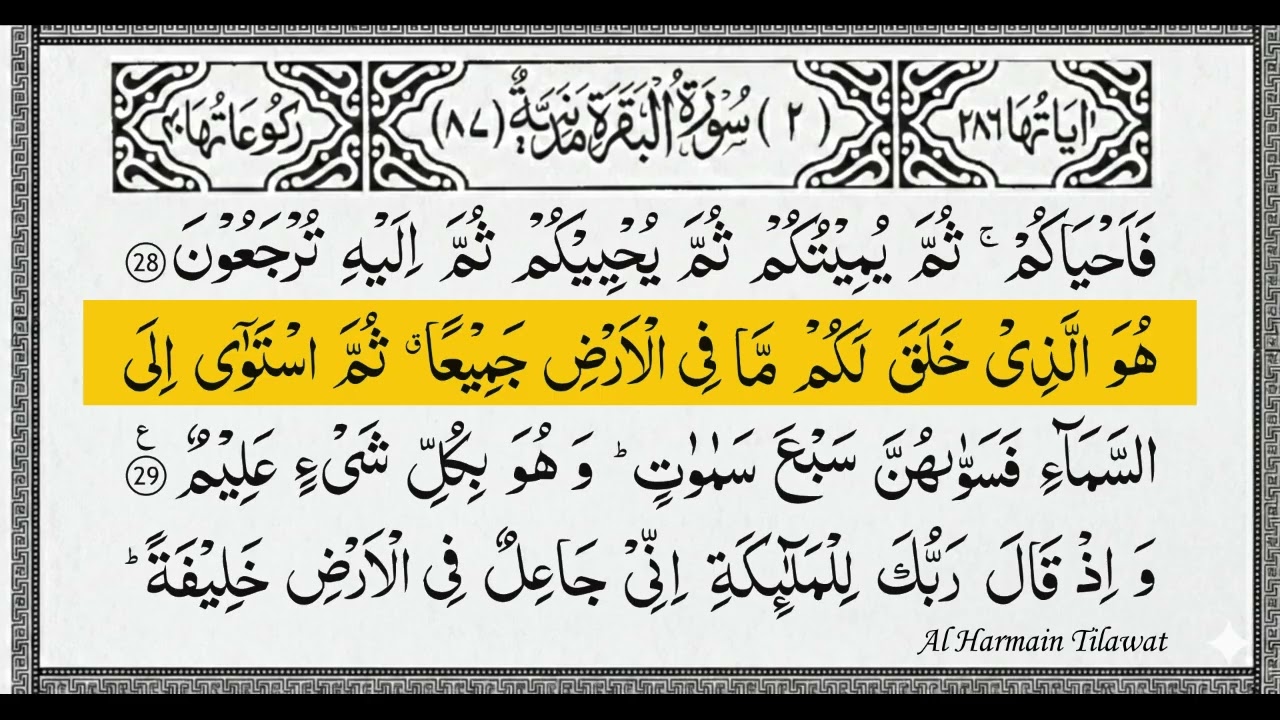 اٰيَاتُهَا ٢٨٦
(٢) سُوْرَةُ الْبَقَرَةِ مَدَنِيَّةٌ (٨٧)
رُكُوْعَاتُهَا ٤٠
فَاَحْيَاكُمْ ۚ ثُمَّ يُمِيْتُكُمْ ثُمَّ يُحْيِيْكُمْ ثُمَّ اِلَيْهِ تُرْجَعُوْنَ 28
هُوَ الَّذِىْ خَلَقَ لَكُمْ مَّا فِى الْاَرْضِ جَمِيْعًا ق ثُمَّ اسْتَوٰٓى اِلَى
السَّمَآءِ فَسَوّٰىهُنَّ سَبْعَ سَمٰوٰتٍ ؕ وَ هُوَ بِكُلِّ شَىْءٍ عَلِيْمٌ ع 29
وَ اِذْ قَالَ رَبُّكَ لِلْمَلٰٓئِكَةِ اِنِّىْ جَاعِلٌ فِى الْاَرْضِ خَلِيْفَةً ؕ
Al Harmain Tilawat